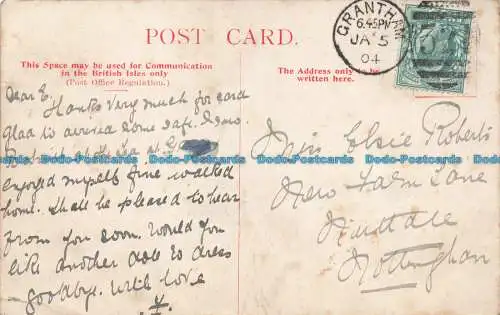 POST CARD.
This Space may be used for Communication
in the British Isles only
(Post Office Regulation.)
The Address only to be
written here.
GRANTHAM
6.45PM
JA 5
04
Dear E,
Thanks very much for card
Glad to arrived home safe.
enjoyed myself fine walked
home. Shall be pleased to hear
from you soon. Would you
like another doll to dress
goodbye. with love
Miss Elsie Roberts
New Farm Lane
Nuthall
Nottingham
www.Ddb-Postcards.com